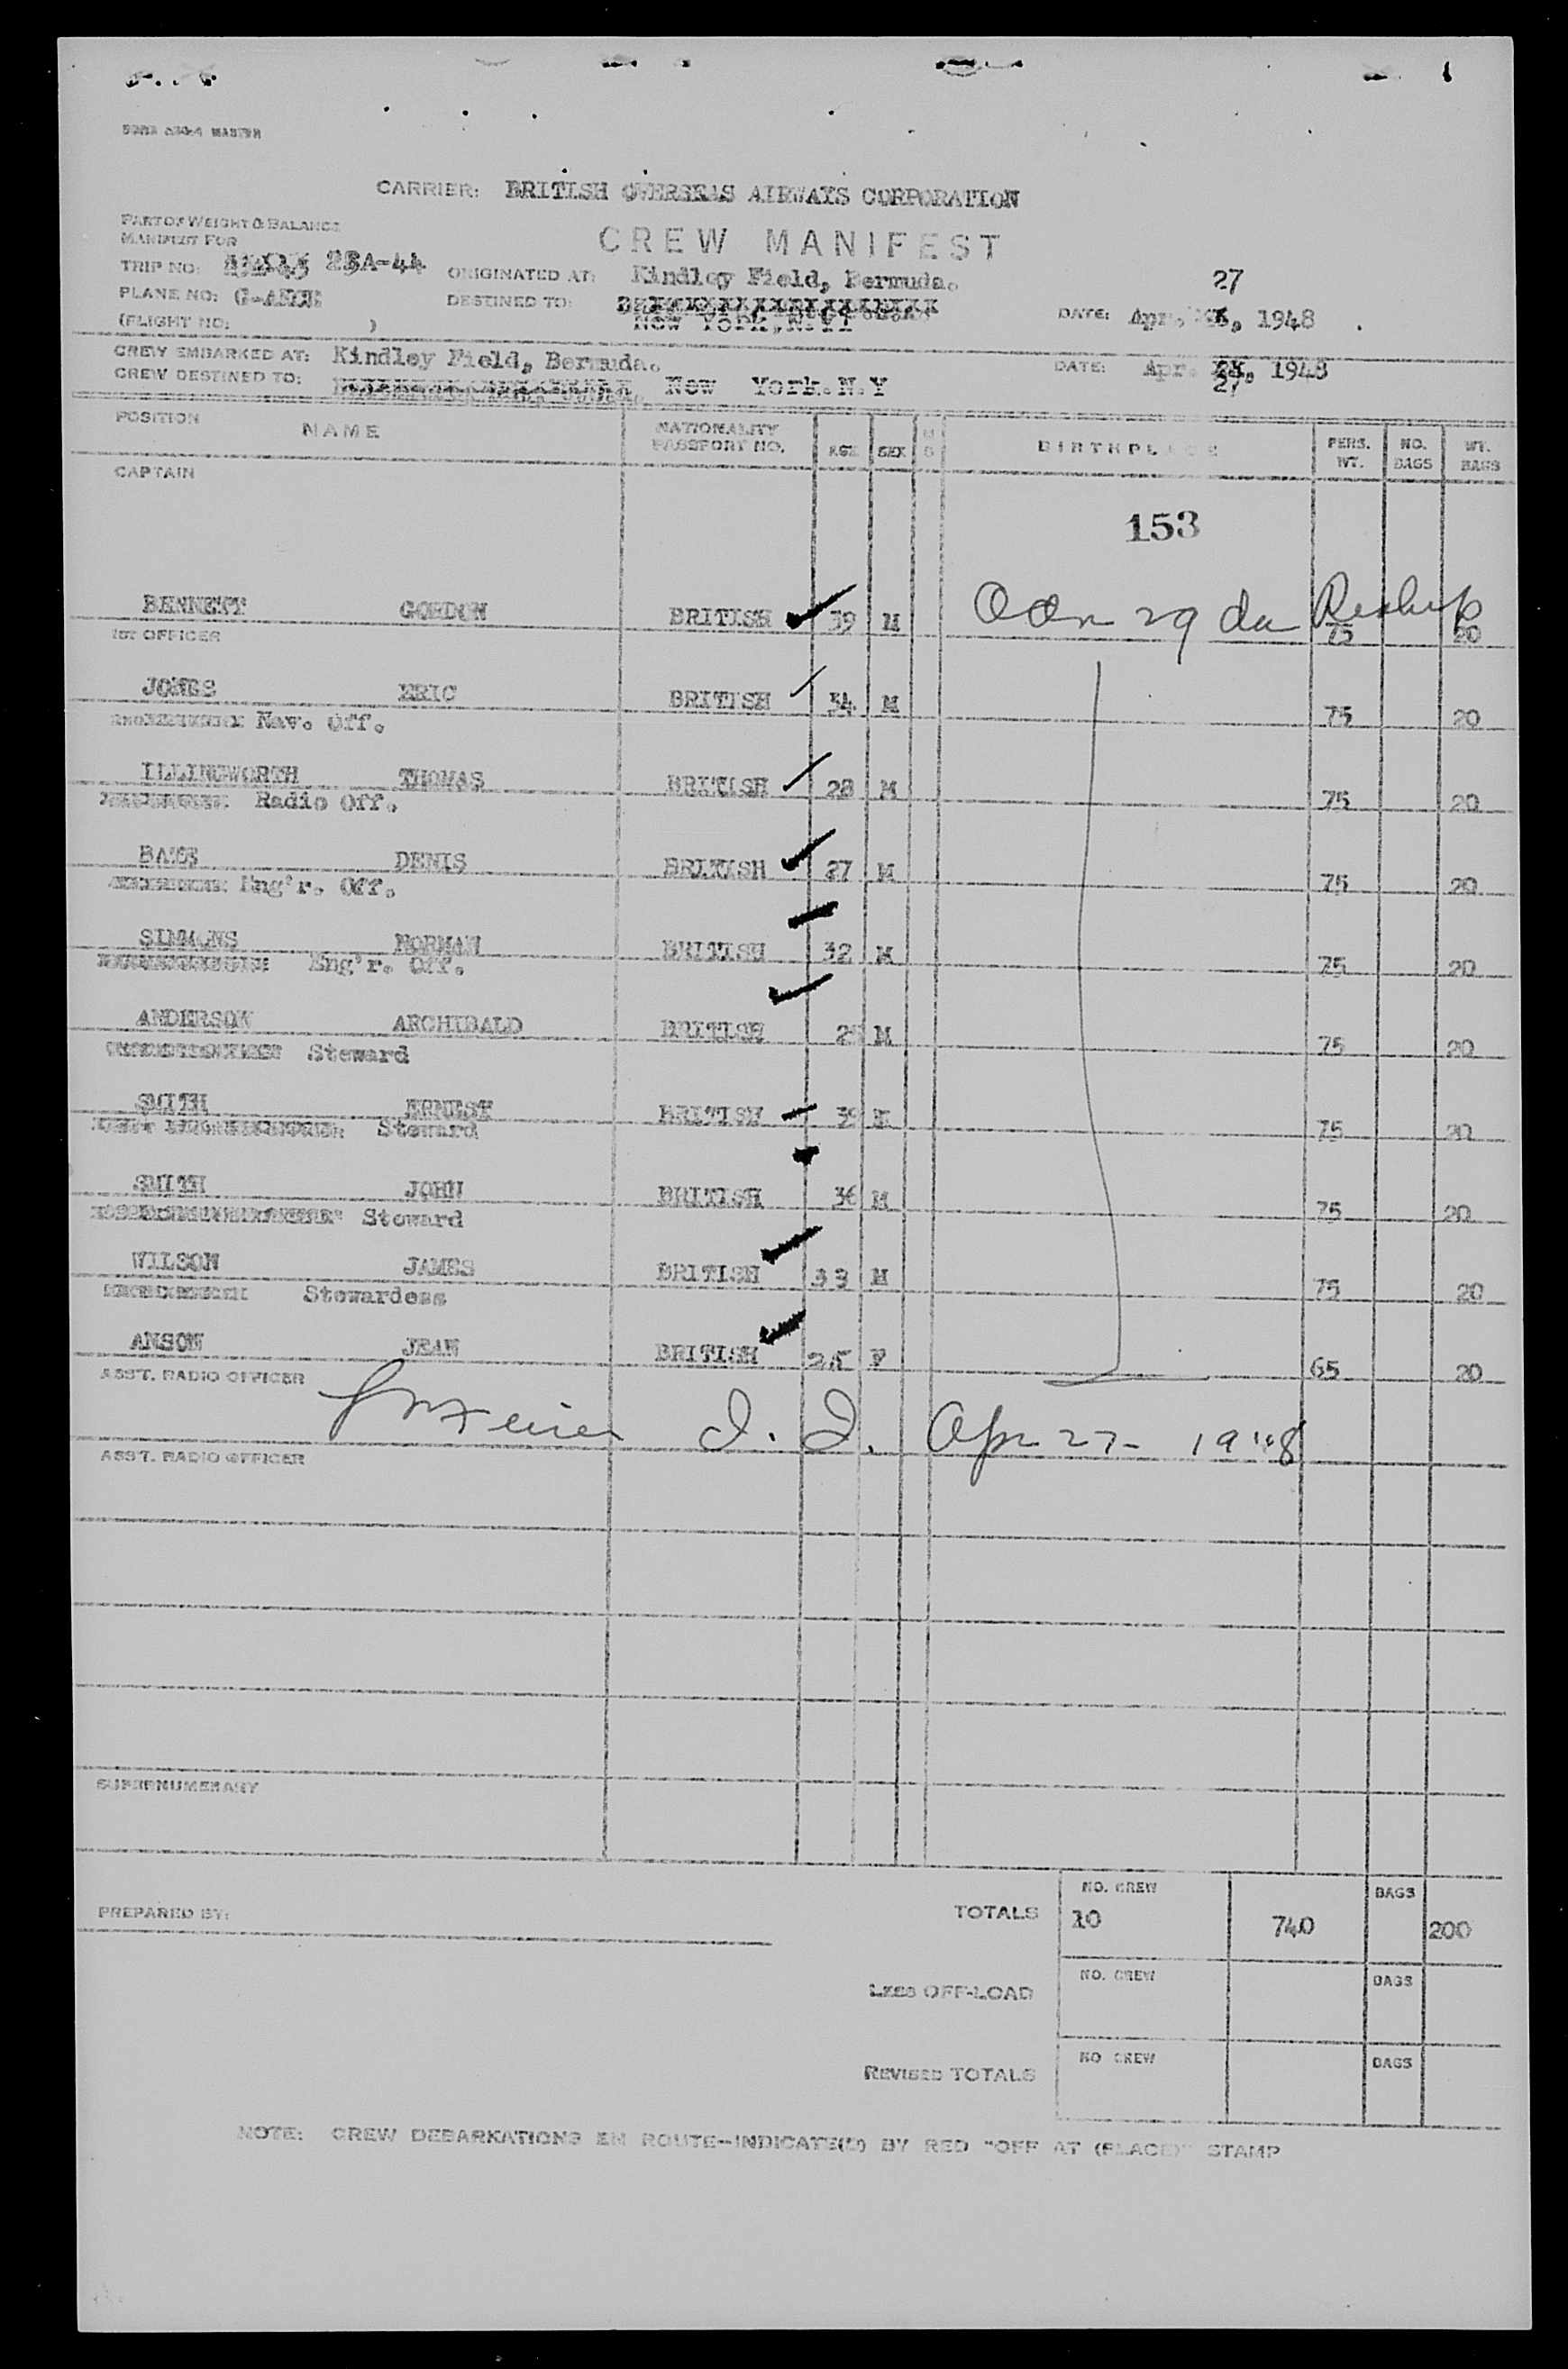 CARRIER: BRITISH OVERSEAS AIRWAYS CORPORATION
PART OF WEIGHT & BALANCE
MANIFEST FOR
CREW MANIFEST
TRIP NO: 23A-44 ORIGINATED AT: Kindley Field, Bermuda. 27
PLANE NO: DESTINED TO: DATE: Apr. 1948
(FLIGHT NO: ) New York, N.Y
CREW EMBARKED AT: Kindley Field, Bermuda. DATE: Apr. 1948
CREW DESTINED TO: New York. N.Y 27
POSITION NAME NATIONALITY PASSPORT NO. AGE SEX BIRTHPLACE PERS. WT. NO. BAGS WT. BAGS
CAPTAIN
153
BENNETT GORDON BRITISH 39 M 29 da 75 20
1ST OFFICER
JONES ERIC BRITISH 34 M 75 20
Nav. Off.
ILLINGWORTH THOMAS BRITISH 28 M 75 20
Radio Off.
BATES DENIS BRITISH 27 M 75 20
Eng'r. Off.
SIMMONS NORMAN BRITISH 32 M 75 20
Eng'r. Off.
ANDERSON ARCHIBALD BRITISH M 75 20
Steward
SMITH ERNEST BRITISH 39 75 20
Steward
SMITH JOHN BRITISH 36 M 75 20
Steward
WILSON JAMES BRITISH 33 M 75 20
Stewardess
ANSON JEAN BRITISH 25 F 65 20
ASS'T. RADIO OFFICER
I. I. Apr 27- 1948
ASS'T. RADIO OFFICER
SUPERNUMERARY
PREPARED BY: TOTALS NO. CREW 10 740 BAGS 200
LESS OFF-LOAD NO. CREW BAGS
REVISED TOTALS NO CREW BAGS
NOTE: CREW DEBARKATIONS EN ROUTE—INDICATE(D) BY RED "OFF AT (PLACE)" STAMP